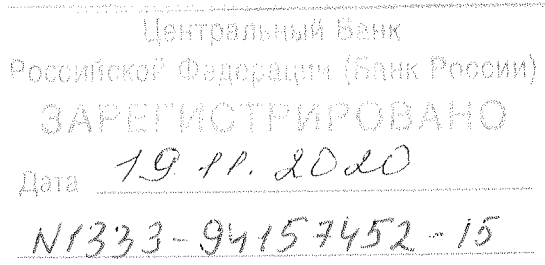 Центральный Банк
Российской Федерации (Банк России)
ЗАРЕГИСТРИРОВАНО
Дата 19.11.2020
N1333-94157452-15